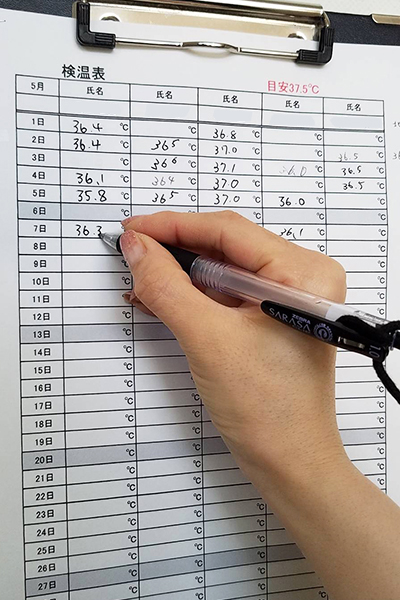 検温表 目安37.5℃
5月 氏名 氏名 氏名 氏名 氏名
1日 36.4 ℃ ℃ 36.8 ℃ ℃ ℃
2日 36.4 ℃ 36.5 ℃ 37.0 ℃ ℃ ℃
3日 ℃ 36.6 ℃ 37.1 ℃ 36.0 ℃ 36.5 ℃
4日 36.1 ℃ 36.4 ℃ 37.0 ℃ ℃ 36.5 ℃
5日 35.8 ℃ 36.5 ℃ 37.0 ℃ 36.0 ℃ 36.5 ℃
6日 ℃ ℃ ℃ ℃ ℃
7日 36.3 36.1 ℃ ℃
8日 ℃
9日 ℃
10日 ℃
11日 ℃
12日 ℃
13日 ℃
14日 ℃
15日 ℃ ℃
16日 ℃ ℃
17日 ℃ ℃
18日 ℃ ℃
19日 ℃ ℃
20日 ℃ ℃ ℃
21日 ℃ ℃ ℃
22日 ℃ ℃ ℃
23日 ℃ ℃ ℃
24日 ℃ ℃ ℃
25日 ℃ ℃ ℃
26日 ℃ ℃ ℃
27日 ℃ ℃ ℃
ZEBRA
SARASA